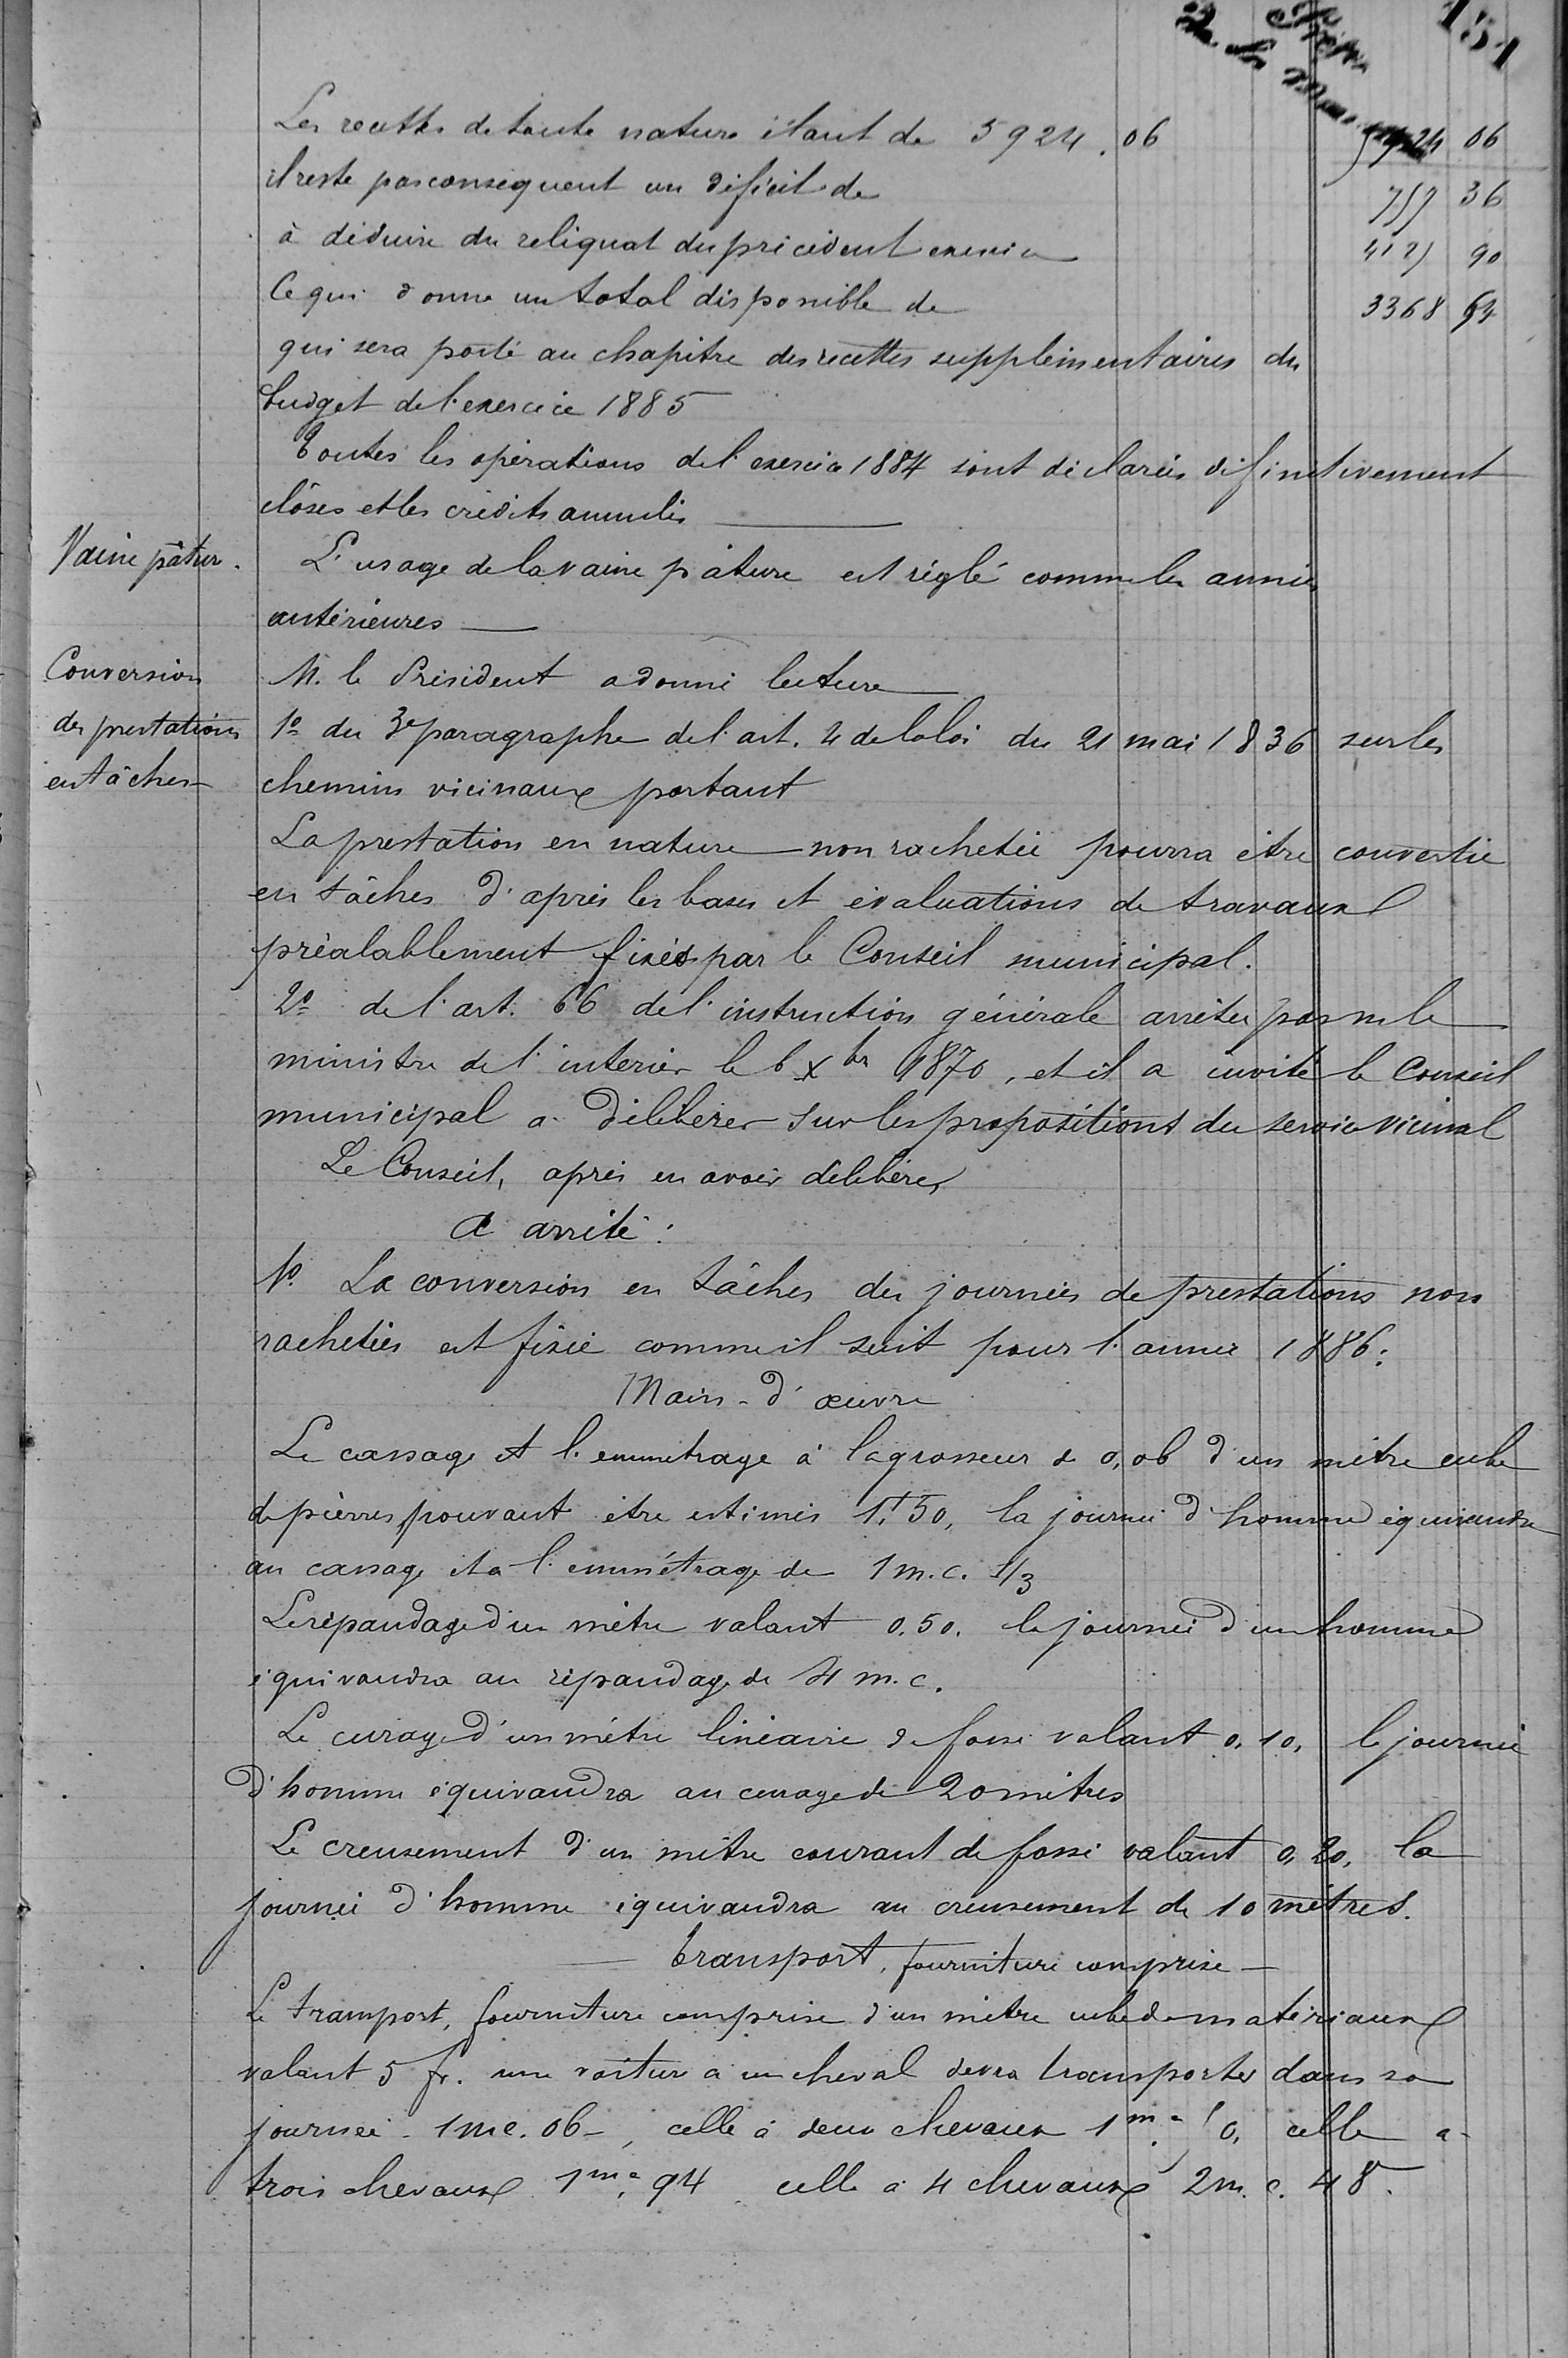 151
Les recettes de toute nature étant de 5924.06 5924 06
il reste par conséquent un déficit de 757 36
à déduire du reliquat du précédent exercice 4125 90
Ce qui donne un total disponible de 3368 54
qui sera porté au chapitre des recettes supplémentaires du
budget de l'exercice 1885
Toutes les opérations de l'exercice 1884 sont déclarées définitivement
clôses et les crédits annulés
Vaine pâture. L'usage de la vaine pâture est réglé comme les années
antérieures
Conversion M. le Président a donné lecture
des prestations 1º du 3e paragraphe de l'art. 4 de la loi du 21 mai 1836 sur les
en tâches chemins vicinaux portant
La prestation en nature non rachetée pourra être convertie
en tâches d'après les bases et évaluations de travaux
préalablement fixés par le Conseil municipal.
2º de l'art. 66 de l'instruction générale arrêtée par m le
ministre de l'intérier le 6 Xbre 1870, et il a invité le Conseil
municipal a délibérer sur les propositions du service vicinal
Le Conseil, après en avoir délibérer
A arrêté :
1º La conversion en tâches des journées de prestations non
rachetées est fixée comme il suit pour l'année 1886:
Main-d'œuvre
Le cassage et l'emmétrage à la grosseur de 0,06 d'un mètre cube
de pierres, pouvant être estimés 1f.50, la journée d'homme équivaudra
au cassage et à l'emmétrage de 1 m.c. 1/3
Le répandage d'un mètre valant 0.50. la journée d'un homme
équivaudra au répandage de 4 m.c.
Le curage d'un mètre linéaire de fossé valant 0.10, la journée
d'homme équivaudra au curage de 20 mètres
Le creusement d'un mètre courant de fossé valant 0,20, la
journée d'homme équivaudra au creusement de 10 mètres.
Transport, fourniture comprise
Le transport, fourniture comprise d'un mètre cube de matériaux
valant 5 fr. une voiture à un cheval devra transporter dans sa
journée 1mc.06, celle à deux chevaux 1m. celle a
trois chevaux 1mc,94 celle à 4 chevaux 2m.c.48.